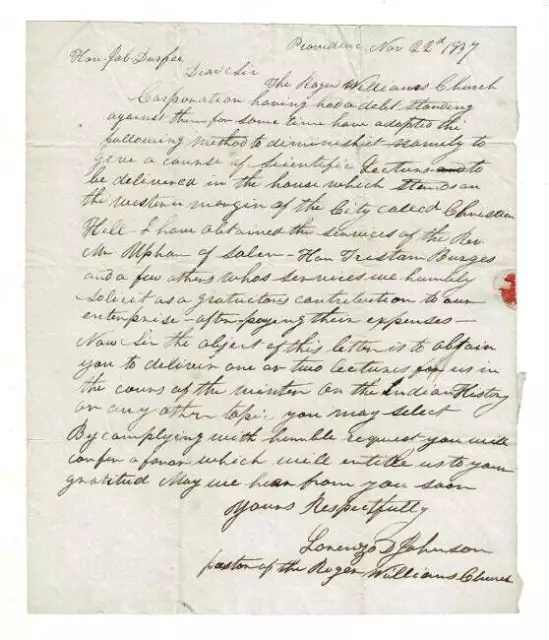 Providence Nov 22d 1837
Hon Job Durfee
Dear Sir
The Roger Williams Church
Corporation having had a debt standing
against them for some time have adopted the
following method to diminish it namely to
give a course of scientific Lectures and to
be delivered in the house which stands on
the western margin of the City called Christian
Hill I have obtained the services of the Rev
Mr Upham of Salem - Hon Tristam Burges
and a few others whos services we humbly
solicit as a gratuctous contrebution to our
enterprise - after paying their expenses -
Now Sir the object of this letter is to obtain
you to deliver one or two lectures for us in
the cours of the winter on the Indian History
or any other topic you may select
By complying with humble request you will
confer a favor which will entitle us to your
gratitud May we hear from you soon
Yours Respectfully
Lorenzo D Johnson
pastor of the Roger Williams Church